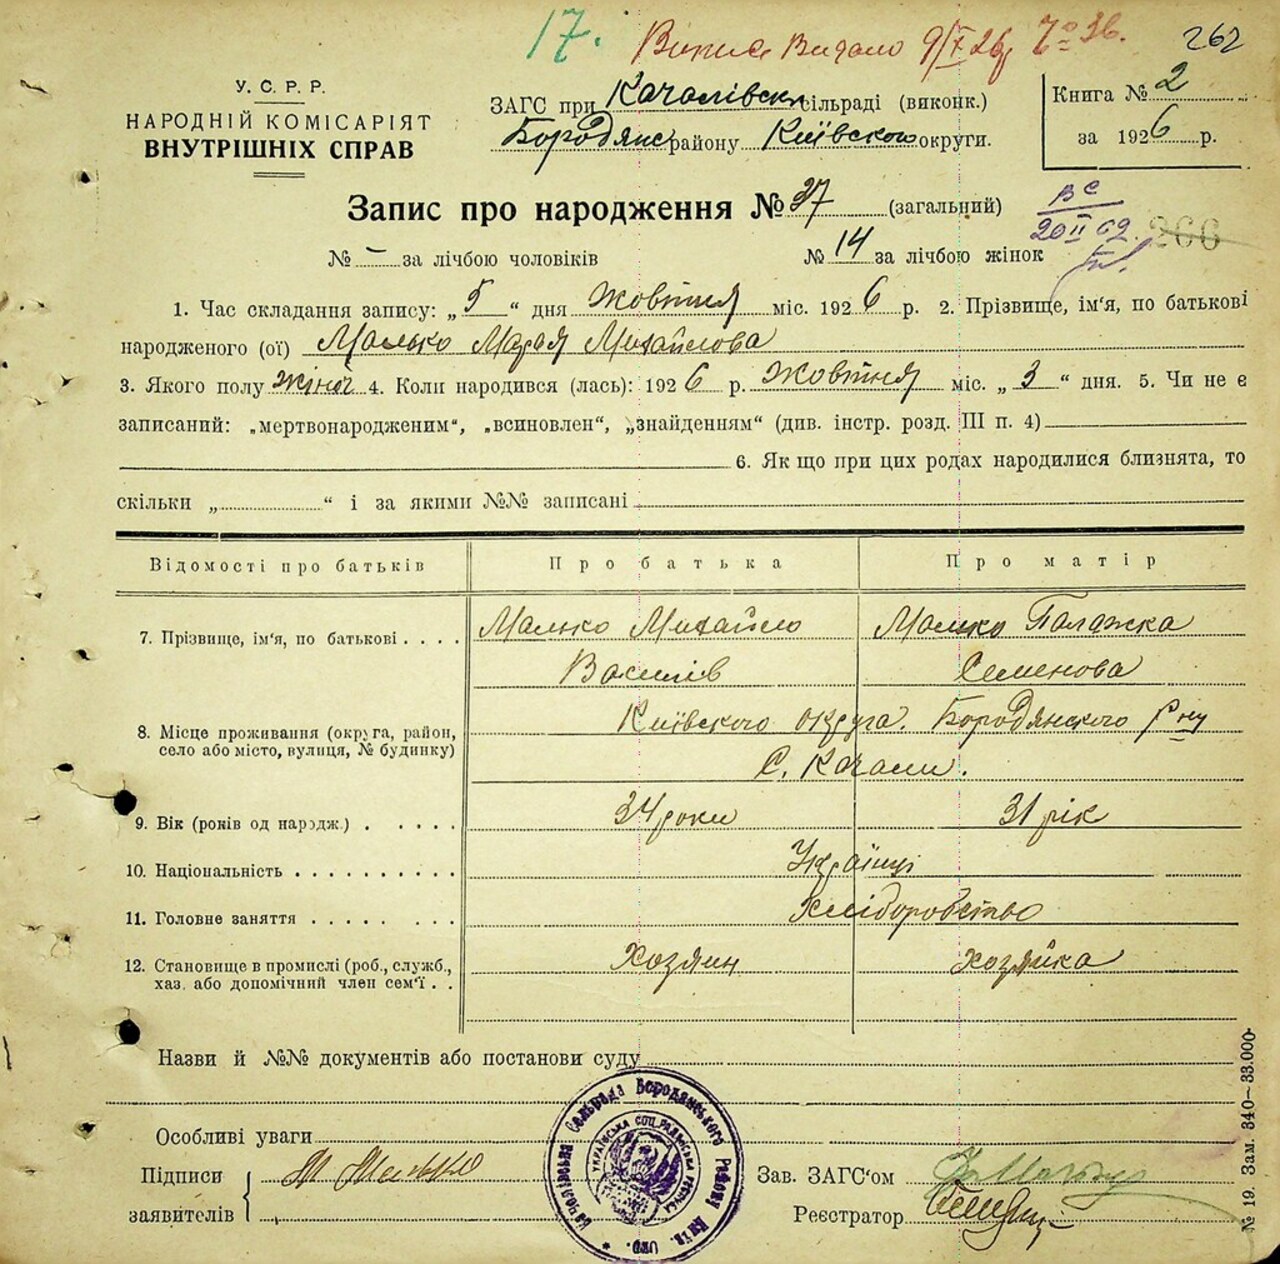 17. Випис Видано 9/X 26р 7º 36. 262
У. С. Р. Р.
НАРОДНІЙ КОМІСАРІЯТ
ВНУТРІШНІХ СПРАВ
ЗАГС при Качалівск сільраді (виконк.)
Бородянс району Київского округи.
Книга № 2
за 1926 р.
Запис про народження № 37 (загальний)
ВС
20 II 69. 266
№ – за лічбою чоловіків № 14 за лічбою жінок
1. Час складання запису: „ 5 “ дня Жовтня міс. 1926 р. 2. Прізвище, ім‘я, по батькові
народженого (ої) Малько Марія Михайлова
3. Якого полу жіноч 4. Коли народився (лась): 1926 р. Жовтня міс. „ 3 “ дня. 5. Чи не є
записаний: „мертвонародженим“, „всиновлен“, „знайденням“ (див. інстр. розд. III п. 4)
6. Як що при цих родах народилися близнята, то
скільки „ “ і за якими №№ записані
Відомості про батьків Про батька Про матір
7. Прізвище, ім‘я, по батькові . . . . Малько Михайло Малько Палажка
Василів Семенова
8. Місце проживання (округа, район, село або місто, вулиця, № будинку) Київского округа. Бородянского Р-ну
С. Качали.
9. Вік (років од нарздж.) . . . . . 34 роки 31 рік
10. Національність . . . . . . . . . . Українці
11. Головне заняття . . . . . . . . . Хліборобство
12. Становище в промислі (роб., служб., Хозяин хозяйка
хаз. або допомічний член сем‘ї . .
Назви й №№ документів або постанови суду
Особливі уваги
Підписи М Малько
заявителів
Зав. ЗАГС‘ом
Реєстратор
Качалівська Сельрада Бородянського Району Київ. Окр.
УКРАЇНСЬКА СОЦ. РАДЯНСЬКА РЕСПУБ.
№ 19. Зам. 340—33.000